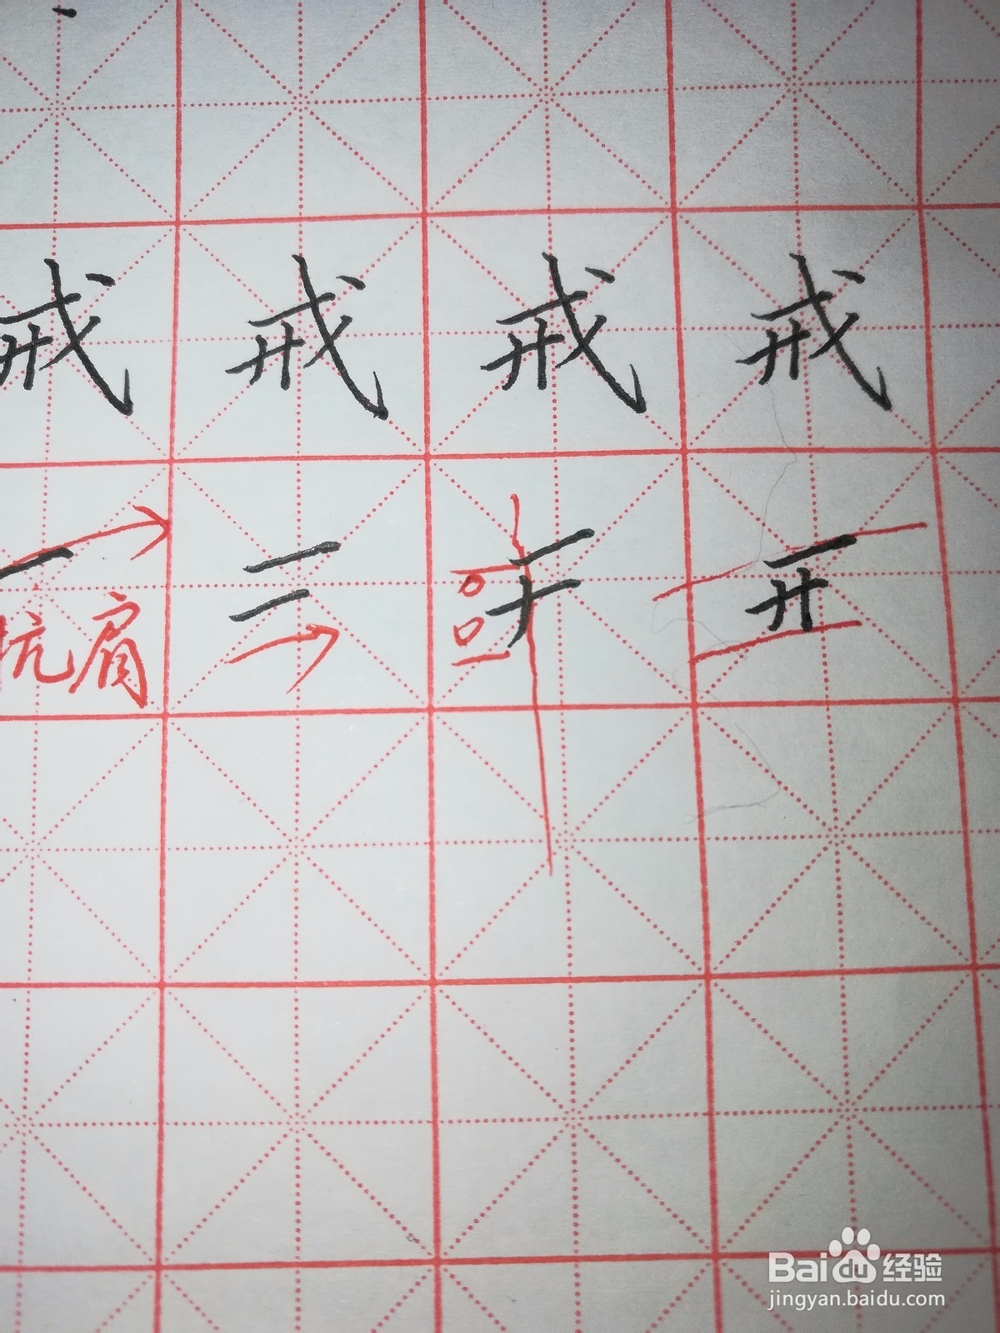 戒 戒 戒 戒
一 二 开
抗肩
Baidu 经验
jingyan.baidu.com